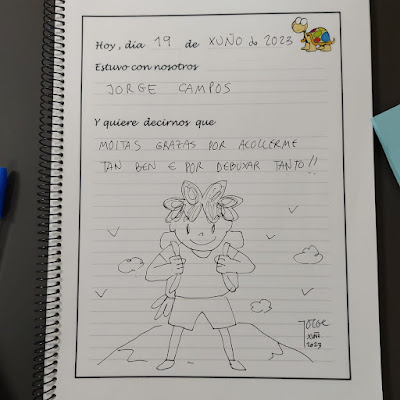 Hoy, dia 19 de XUÑO de 2023
Estuvo con nosotros
JORGE CAMPOS
Y quiere decirnos que
MOITAS GRAZAS POR ACOLLERME
TAN BEN E POR DEBUXAR TANTO!!
JORGE
XUÑ
2023